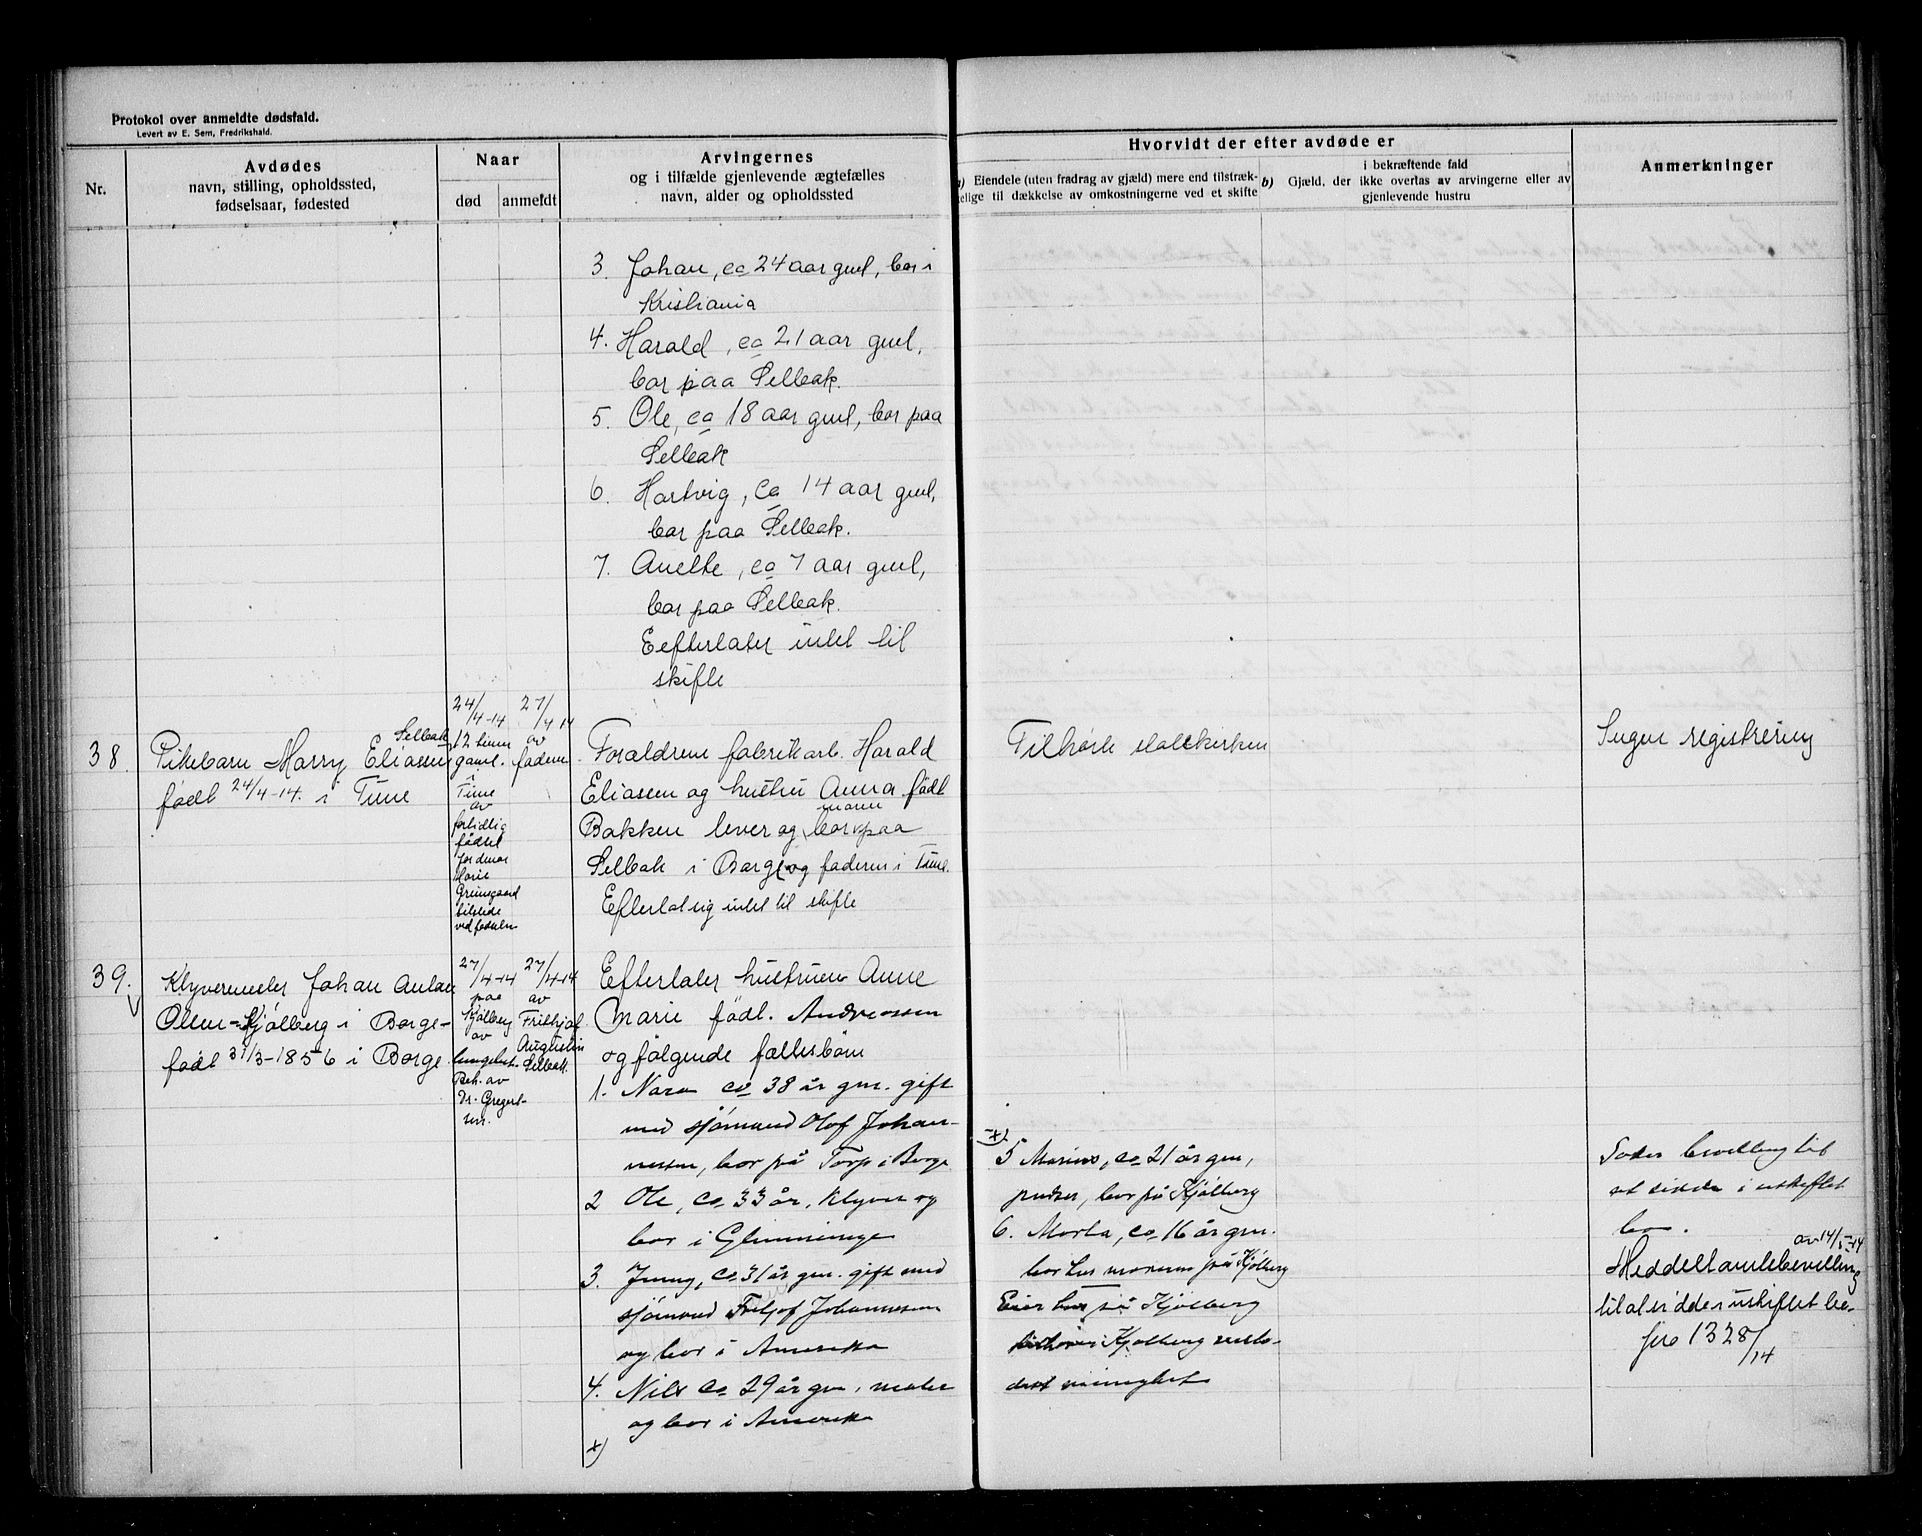 Protokol over anmeldte dødsfald.
Levert av E. Sem, Fredrikshald.
Nr.
Avdødes
navn, stilling, opholdssted,
fødselsaar, fødested
Naar
død
anmeldt
Arvingernes
og i tilfælde gjenlevende ægtefælles
navn, alder og opholdssted
Hvorvidt der efter avdøde er
a) Eiendele (uten fradrag av gjæld) mere end tilstræk-
kelige til dækkelse av omkostningerne ved et skifte
i bekræftende fald
b) Gjæld, der ikke overtas av arvingerne eller av
gjenlevende hustru
Anmerkninger
3. Johan, ca 24 aar gml, bor i
Kristiania
4. Harald, ca 21 aar gml,
bor paa Selbak.
5. Ole, ca 18 aar gml, bor paa
Selbak
6. Hartvig, ca 14 aar gml,
bor paa Selbak.
7. Anette, ca 7 aar gml,
bor paa Selbak.
Eefterlater intet til
skifte
38.
Selbak
Pikebarn Marry Eliassen
født 24/4-14. i Tune
24/4-14
12 timer
gaml.
i
Tune
av
fortidlig
fødsel
jordmor
Marie
Grønsgaard
tilstede
ved fødselen
27/4-14
av
faderen.
Forældrene fabrikarb. Harald
Eliassen og hustru Anna født
Bakken lever og moren bor paa
Selbak i Borge og faderen i Tune.
Efterlot sig intet til skifte
Tilhørte statskirken
Ingen registrering
39.
Klyvermester Johan Anton
Olsen-Kjølberg i Borge-
født 31/3-1856 i Borge
27/4-14
paa
Kjølberg
av
lungebet.
Beh. av
Dr. Gregert-
sen.
27/4-14
av
Frithjof
Augustin
Selbak.
Efterlater hustruen Anne
Marie født. Andreassen
og følgende fællesbørn
1. Nara ca 38 år gml. gift
med sjømand Olof Johan-
nessen, bor på Torp i Borge
2 Ole, ca 33 år, klyver og
bor i Glemminge
3. Jenny, ca 31 år gm. gift med
sjømand Fritjof Johannessen
og bor i Amerika
4. Nils ca 29 år gm, maler
og bor i Amerika
x)
x)
5 Marius, ca 21 år gm,
pudser, bor på Kjølberg
6. Marta, ca 16 år gm.
bor hos moren på Kjølberg
Eier hus på Kjølberg
tilhører Kjølberg
menighet
Søker bevilling til
at sidde i uskiftet
bo.
av 14/5-14
Meddelt amtsbevilling
til at sidde i uskiftet bo.
jno 1328/14